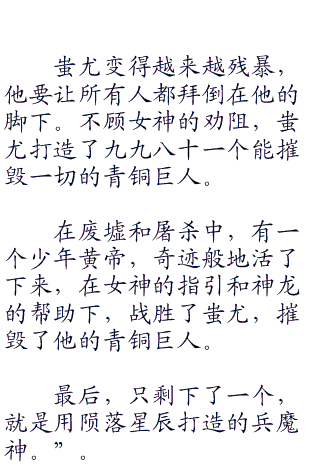 蚩尤变得越来越残暴，
他要让所有人都拜倒在他的
脚下。不顾女神的劝阻，蚩
尤打造了九九八十一个能摧
毁一切的青铜巨人。
在废墟和屠杀中，有一
个少年黄帝，奇迹般地活了
下来，在女神的指引和神龙
的帮助下，战胜了蚩尤，摧
毁了他的青铜巨人。
最后，只剩下了一个，
就是用陨落星辰打造的兵魔
神。”。